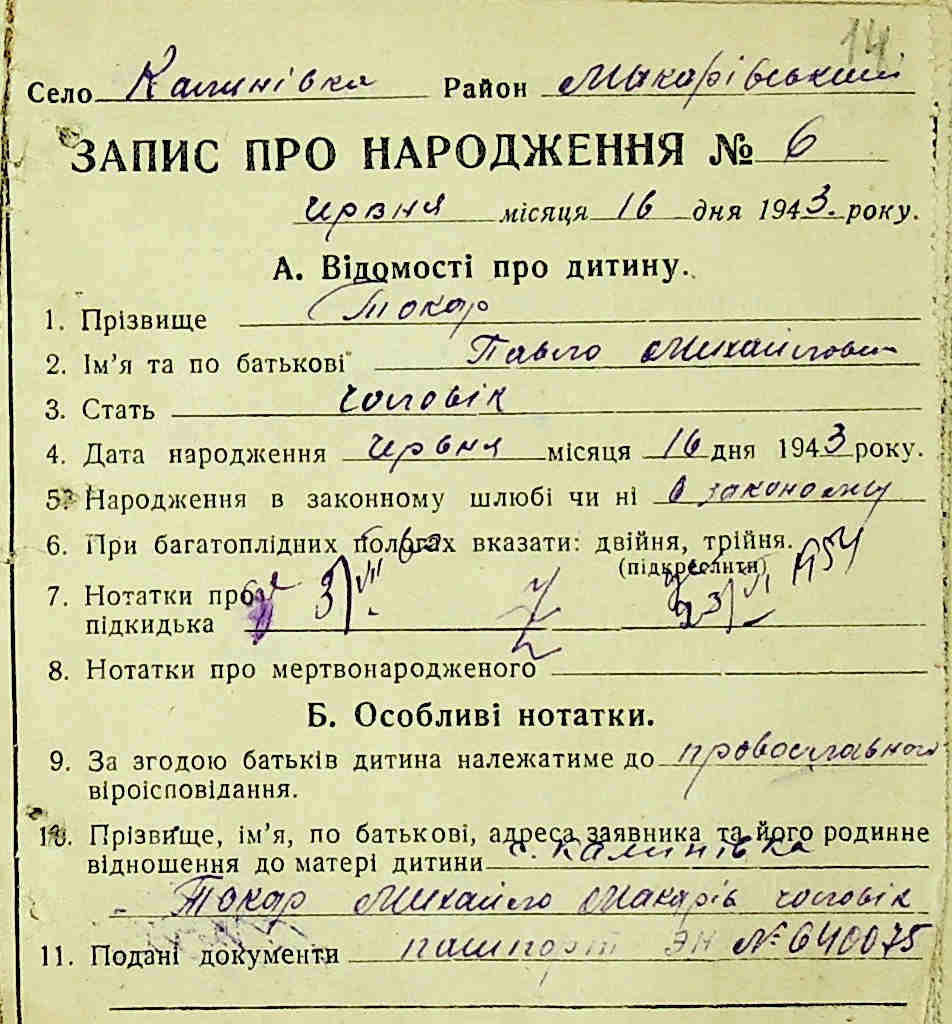 14.
Село Калинівка Район Макарівський
ЗАПИС ПРО НАРОДЖЕННЯ № 6
червня місяця 16 дня 1943. року.
А. Відомості про дитину.
1. Прізвище Токар
2. Ім'я та по батькові Павло Михайлович
3. Стать чоловік
4. Дата народження червня місяця 16 дня 1943 року.
5. Народження в законному шлюбі чи ні в законому
6. При багатоплідних пологах вказати: двійня, трійня.
(підкреслити)
7. Нотатки про
підкидька
8. Нотатки про мертвонародженого
Б. Особливі нотатки.
9. За згодою батьків дитина належатиме до провославного
віроісповідання.
10. Прізвище, ім'я, по батькові, адреса заявника та його родинне
відношення до матері дитини с. Калинівка
Токар Михайло Макарів чоловік
11. Подані документи пашпорт ЭН № 640075